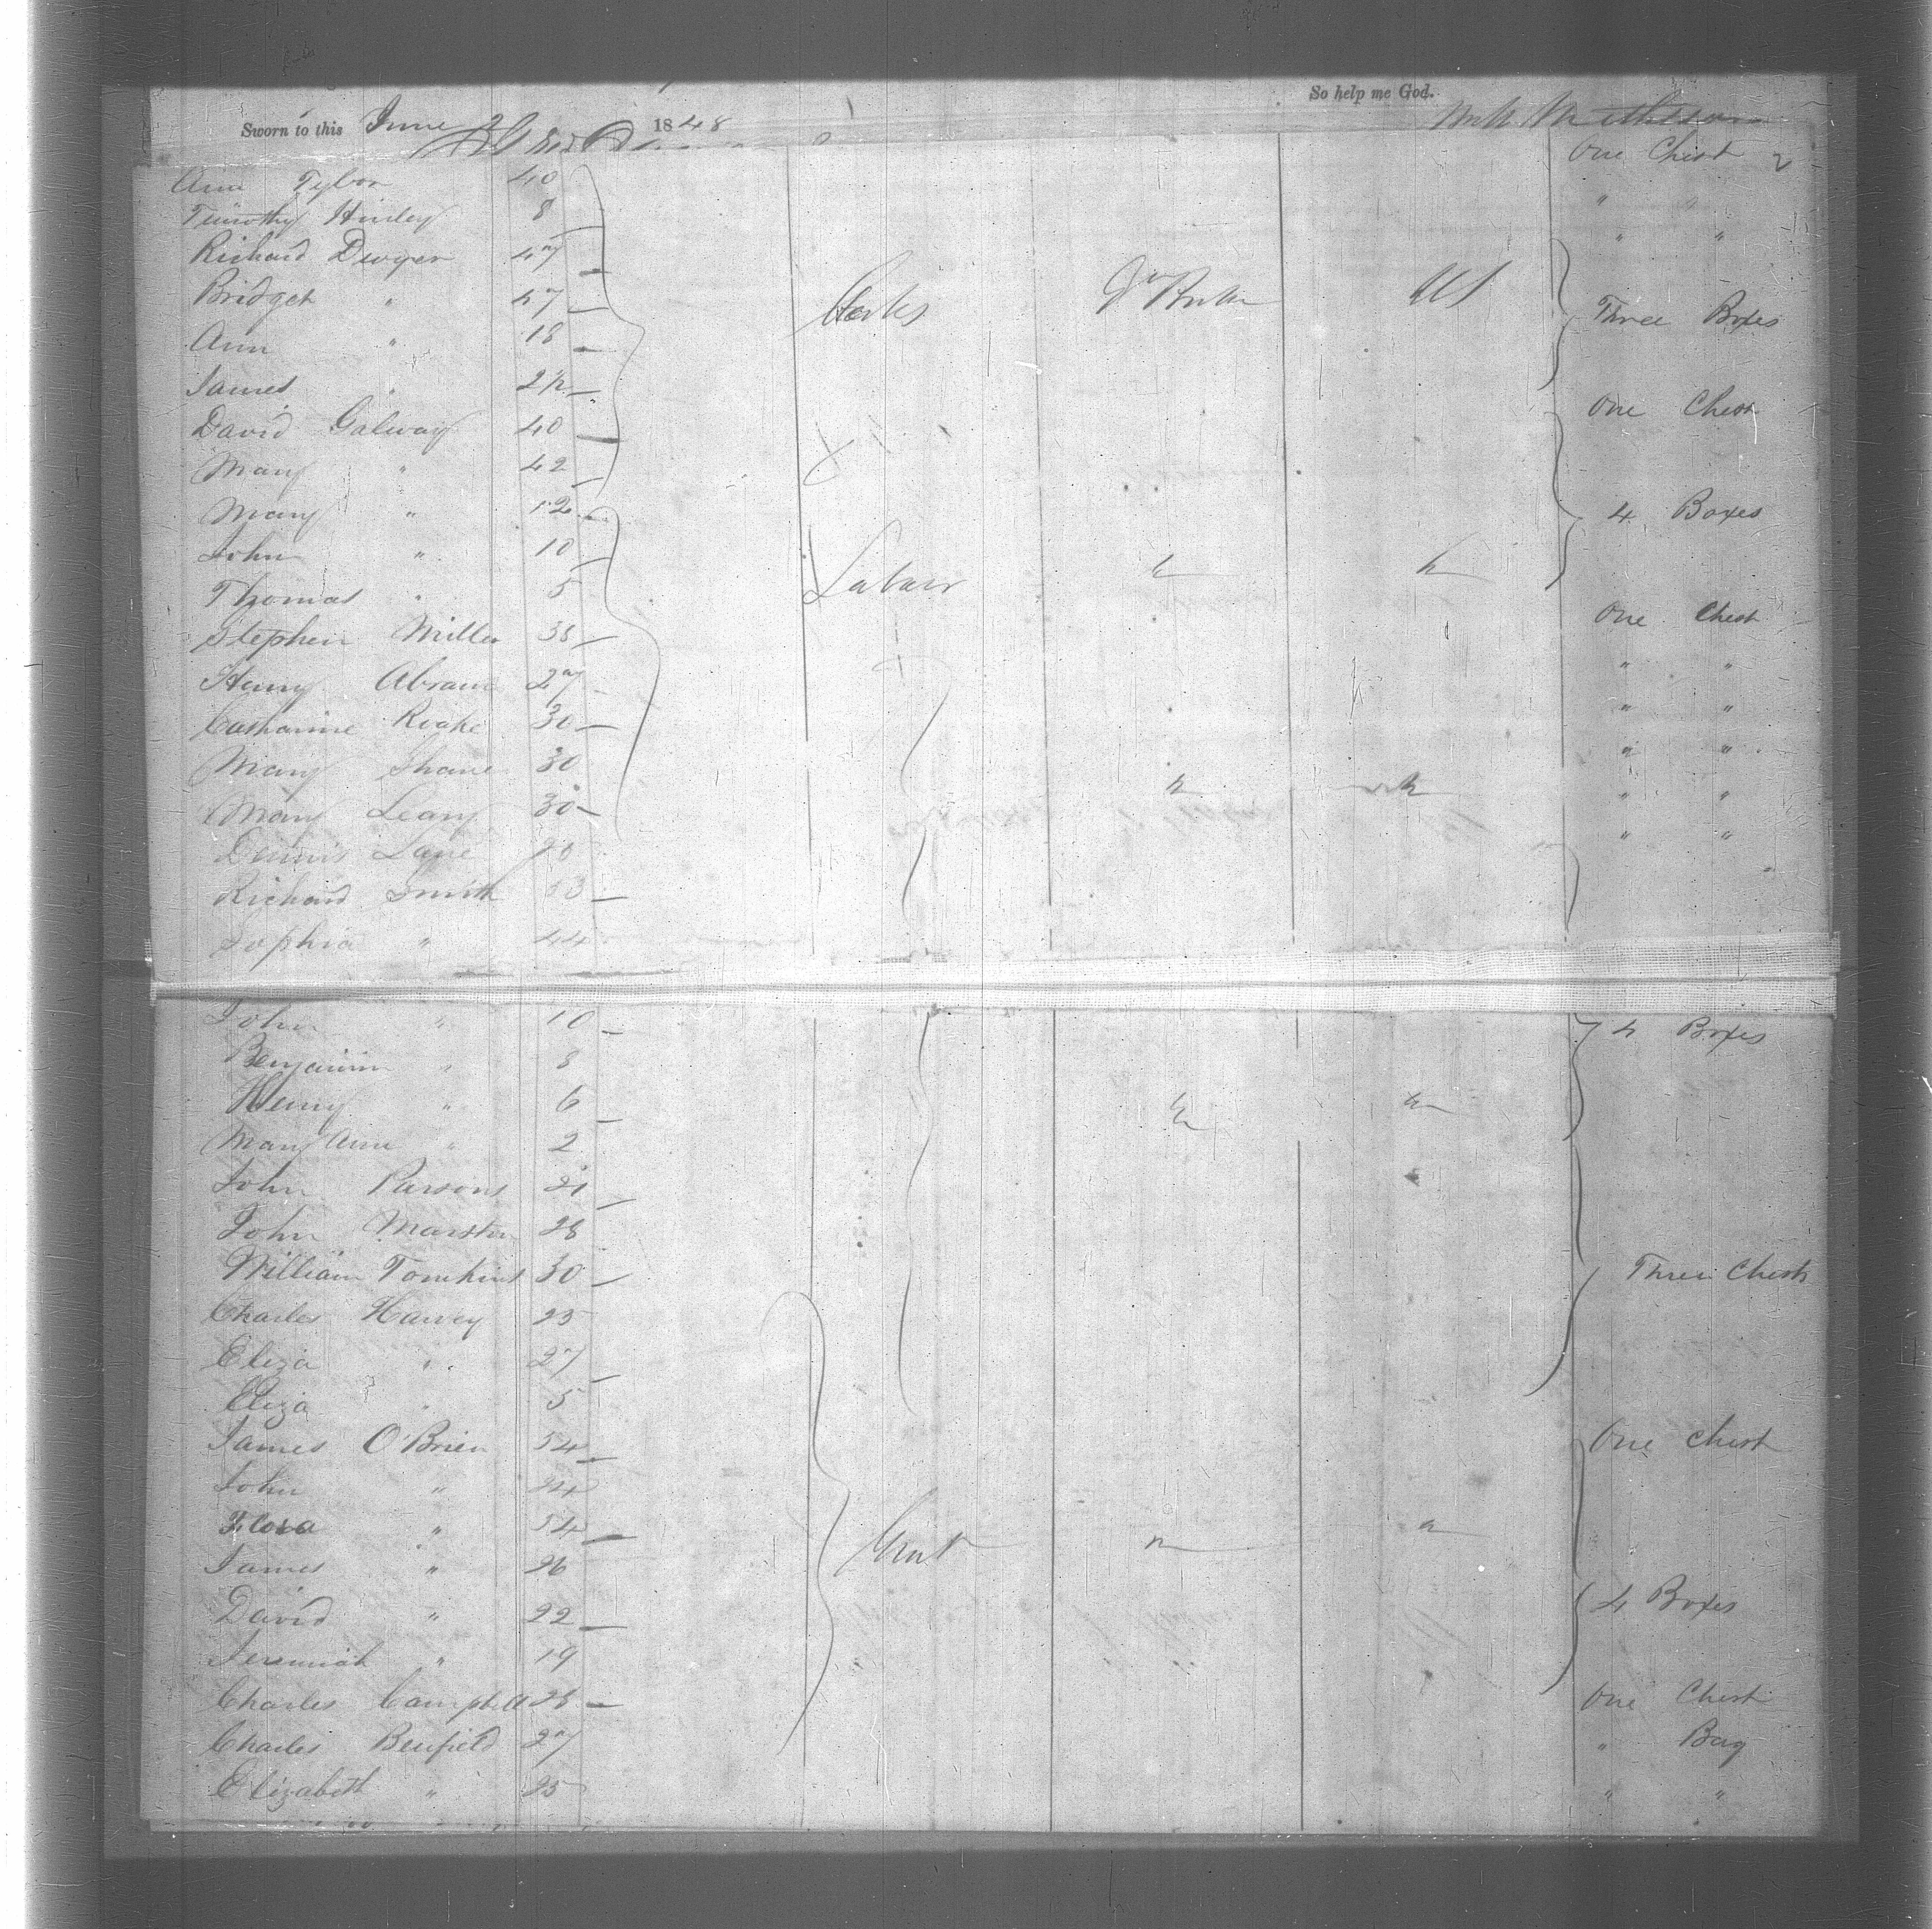 So help me God.
Sworn to this June 2 1848
One Chest
Ann Tylor 40 " "
Timothy Hurley 8 " "
Richard Dwyer 47
Bridget " 47 Clerks Gt Britn US Three Boxes
Ann " 18
James " 2½
David Galway 40 One Chest
Mary " 42
Mary " 12 4 Boxes
John " 10
Thomas " 5 Labour " "
Stephen Miller 38 One Chest
Henry Abram 27 " "
Catharine Roake 30 " "
Mary Shane 30 " "
Mary Leary 30 " "
Dennis Lane 28 " "
Richard Smith 53
Sophia " 44
John " 10 4 Boxes
Benjamin " 8
Henry " 6 " "
Mary Ann " 2
John Parsons 21
John Marston 28
William Tomkins 30 Three Chests
Charles Harvey 25
Eliza " 27
Eliza " 5
James O'Brien 54 One Chest
John " 24
Flora " 54 " "
James " 26
David " 22 4 Boxes
Jeremiah " 19
Charles Campbell 28 One Chest
Charles Benfield 27 " Bag
Elizabeth " 25 " "